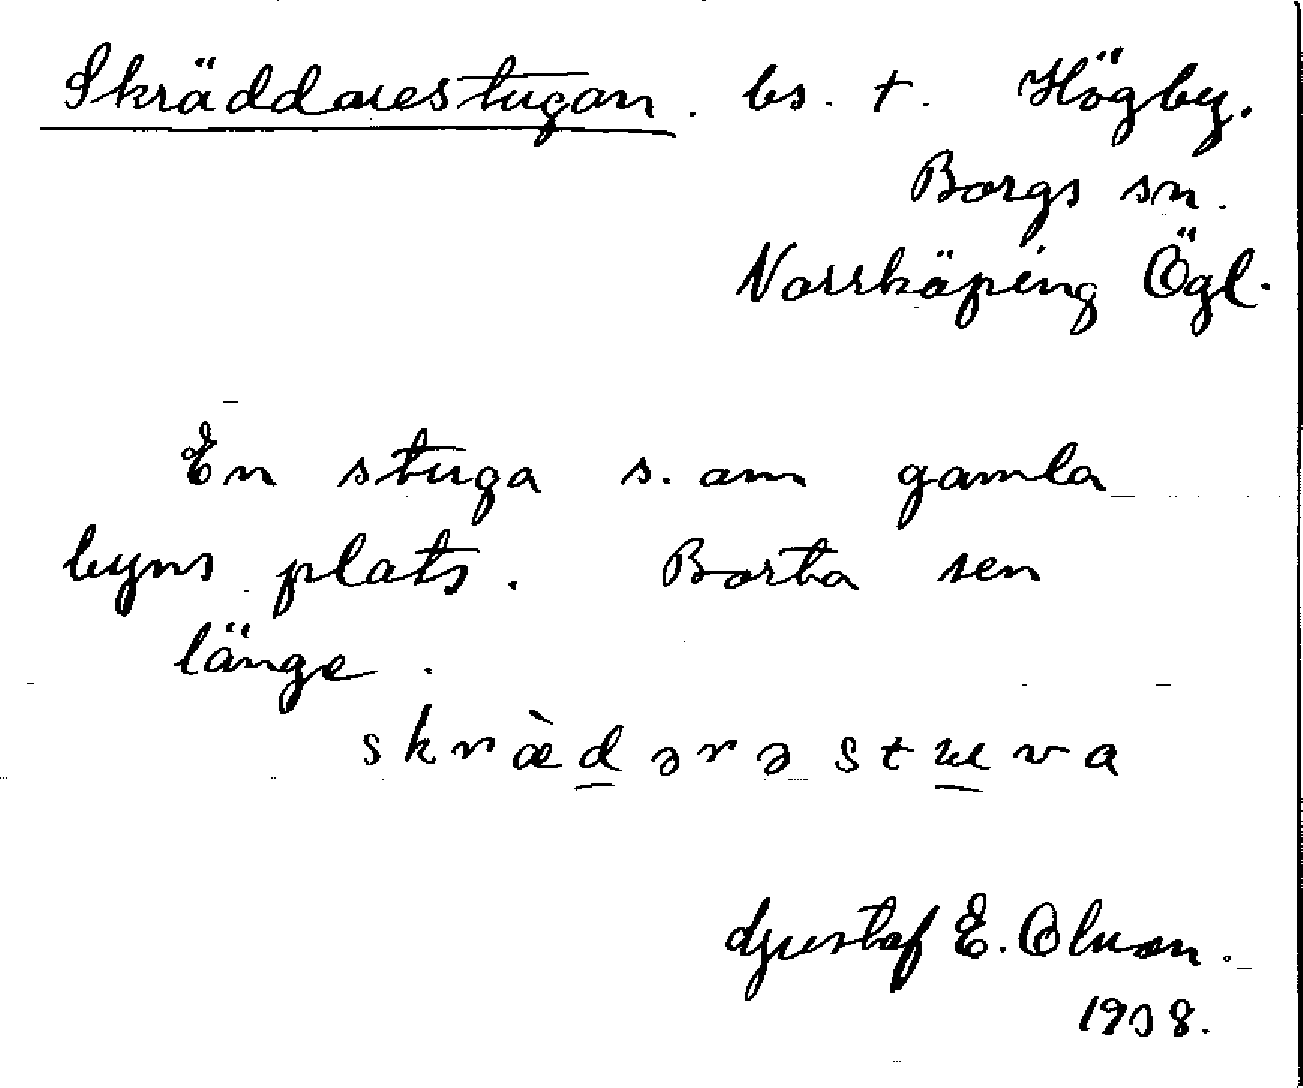 Skräddarestugan. bs. t. Högby.
Borgs sn.
Norrköping Ögl.
En stuga s. om gamla
byns plats. Borta sen
länge.
skræ̀dərəstuva
Gustaf E. Olsson.
1938.